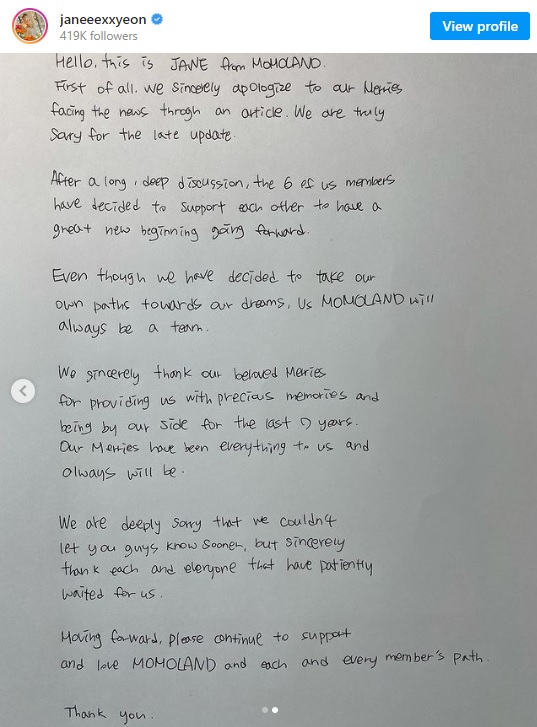 janeeexxyeon
419K followers
View profile
Hello, this is JANE from MOMOLAND.
First of all, we sincerely apologize to our Merries
facing the news throgh an article. We are truly
Sorry for the late update.
After a long, deep discussion, the 6 of us members
have decided to support each other to have a
great new beginning going forward.
Even though we have decided to take our
own paths towards our dreams, Us MOMOLAND will
always be a team.
We sincerely thank our beloved Merries
for providing us with precious memories and
being by our side for the last 7 years.
Our Merries have been everything to us and
always will be.
We are deeply sorry that we couldn't
let you guys know sooner, but sincerely
thank each and everyone that have patiently
waited for us.
Moving forward, please continue to support
and love MOMOLAND and each and every member's path.
Thank you.